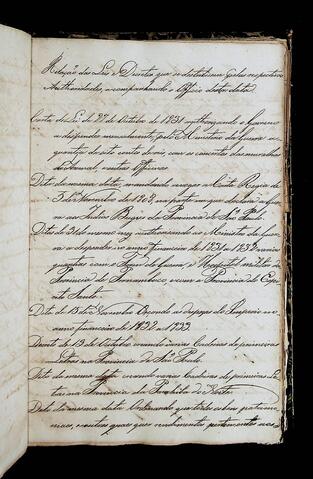 Relação das Leis e Decretos que se destribuem pelas respectivas
Authoridades, acompanhando o Officio desta data
Carta de Lei de 27 de Outubro de 1831 authorizando o Governo
a despender mensalmente, pelo Ministerio da Guerra a
quantia de oito contos de reis, com os concertos das muralhas
do Arsenal, e outras Officinas
Dito da mesma data, mandando revogar a Carta Regia de
5 de Novembro de 1808, na parte em que declara a guer
ra aos Indios Bugres da Provincia de São Paulo
Dito do mesmo authorizando ao Ministro da Guer
ra a despender no anno financeiro de 1831 a 1832 varias
quantias com o
Provincia de Pernambuco, e com a Provincia do Espi
rito Santo.
Dito de 15 de Novembro Orçando as despezas do Imperio no
anno financeiro de 1832 a 1833.
Decreto de 13 de Outubro creando varias Cadeiras de primeiras
Letras na Provincia de São Paulo.
Dito da mesma data creando varias Cadeiras de primeiras Le
tras na Provincia da Parahiba do Norte.
Dito da mesma data Ordenando que todos os bens patrimo
niaes, e outros quaesquer rendimentos pertencentes aos